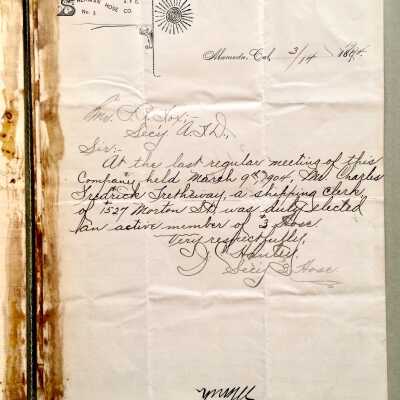 HOSE CO.
No. 3
Alameda, Cal, 3/14 1894.
Fox,—
Secy A.F.D.,
Sir:—
At the last regular meeting of this
Company, held March 9th, 1904, Mr Charles
Fredrick Tretheway, a shipping clerk
of #1527 Morton St, was duly elected
an active member of #3 Hose
Very respectfully,
Secy 3 Hose